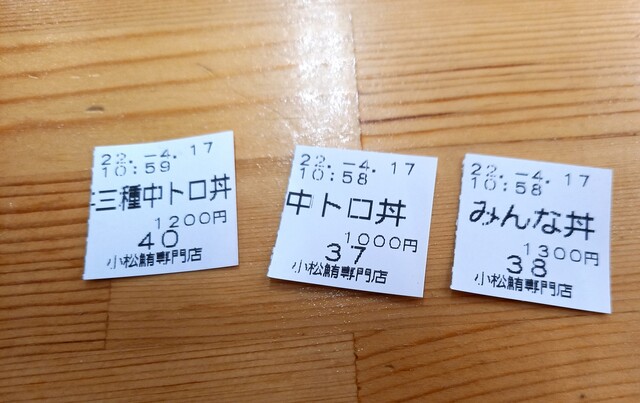 22.-4.17
10:59
三種中トロ丼
1200円
40
小松鮪専門店
22.-4.17
10:58
中トロ丼
1000円
37
小松鮪専門店
22.-4.17
10:58
みんな丼
1300円
38
小松鮪専門店